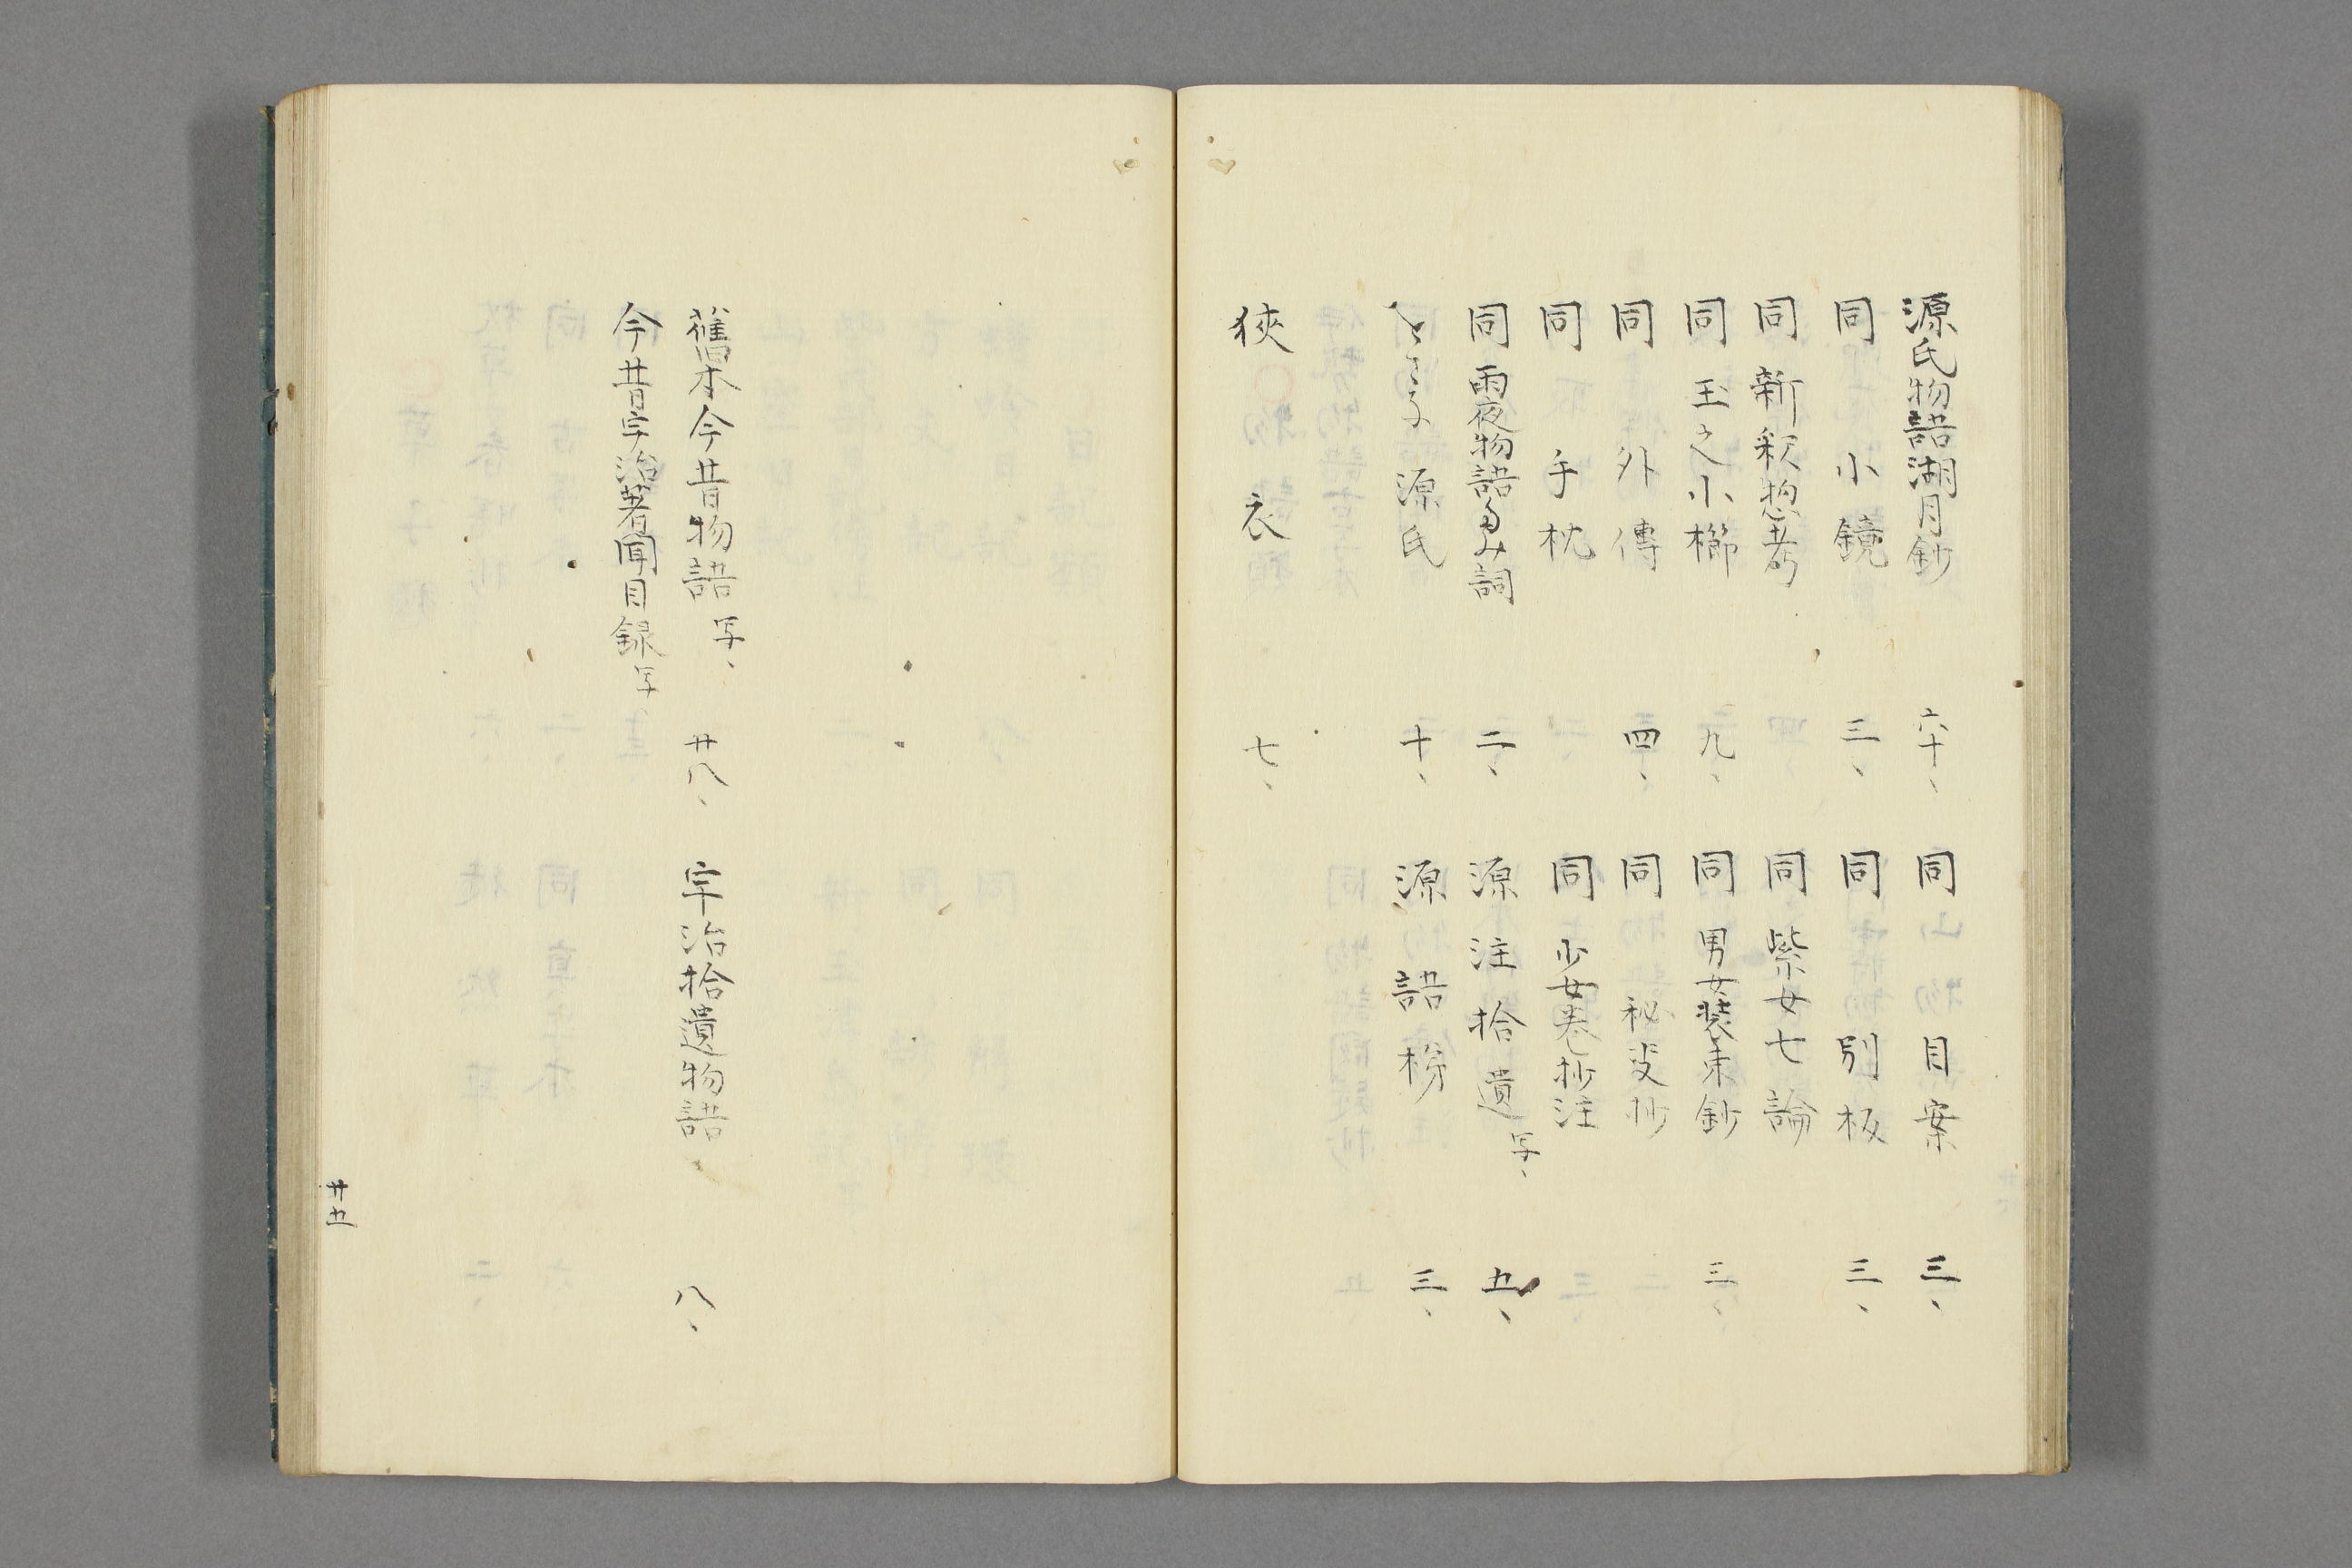 源氏物語湖月鈔 六十、 同 目案 三、
同 小鏡 三、 同 別板 三、
同 新釈惣考 同 紫女七論
同 玉之小櫛 九、 同 男女装束鈔 三、
同 外傳 四、 同 秘 抄
同 手枕 同 少女巻抄注
同 雨夜物語多み詞 二、 源注拾遺 写、 五、
源氏 十、 源語梯 三、
狹衣 七、
舊本今昔物語 写、 廿八、 宇治拾遺物語 八、
今昔宇治著聞目録 写、
廿五